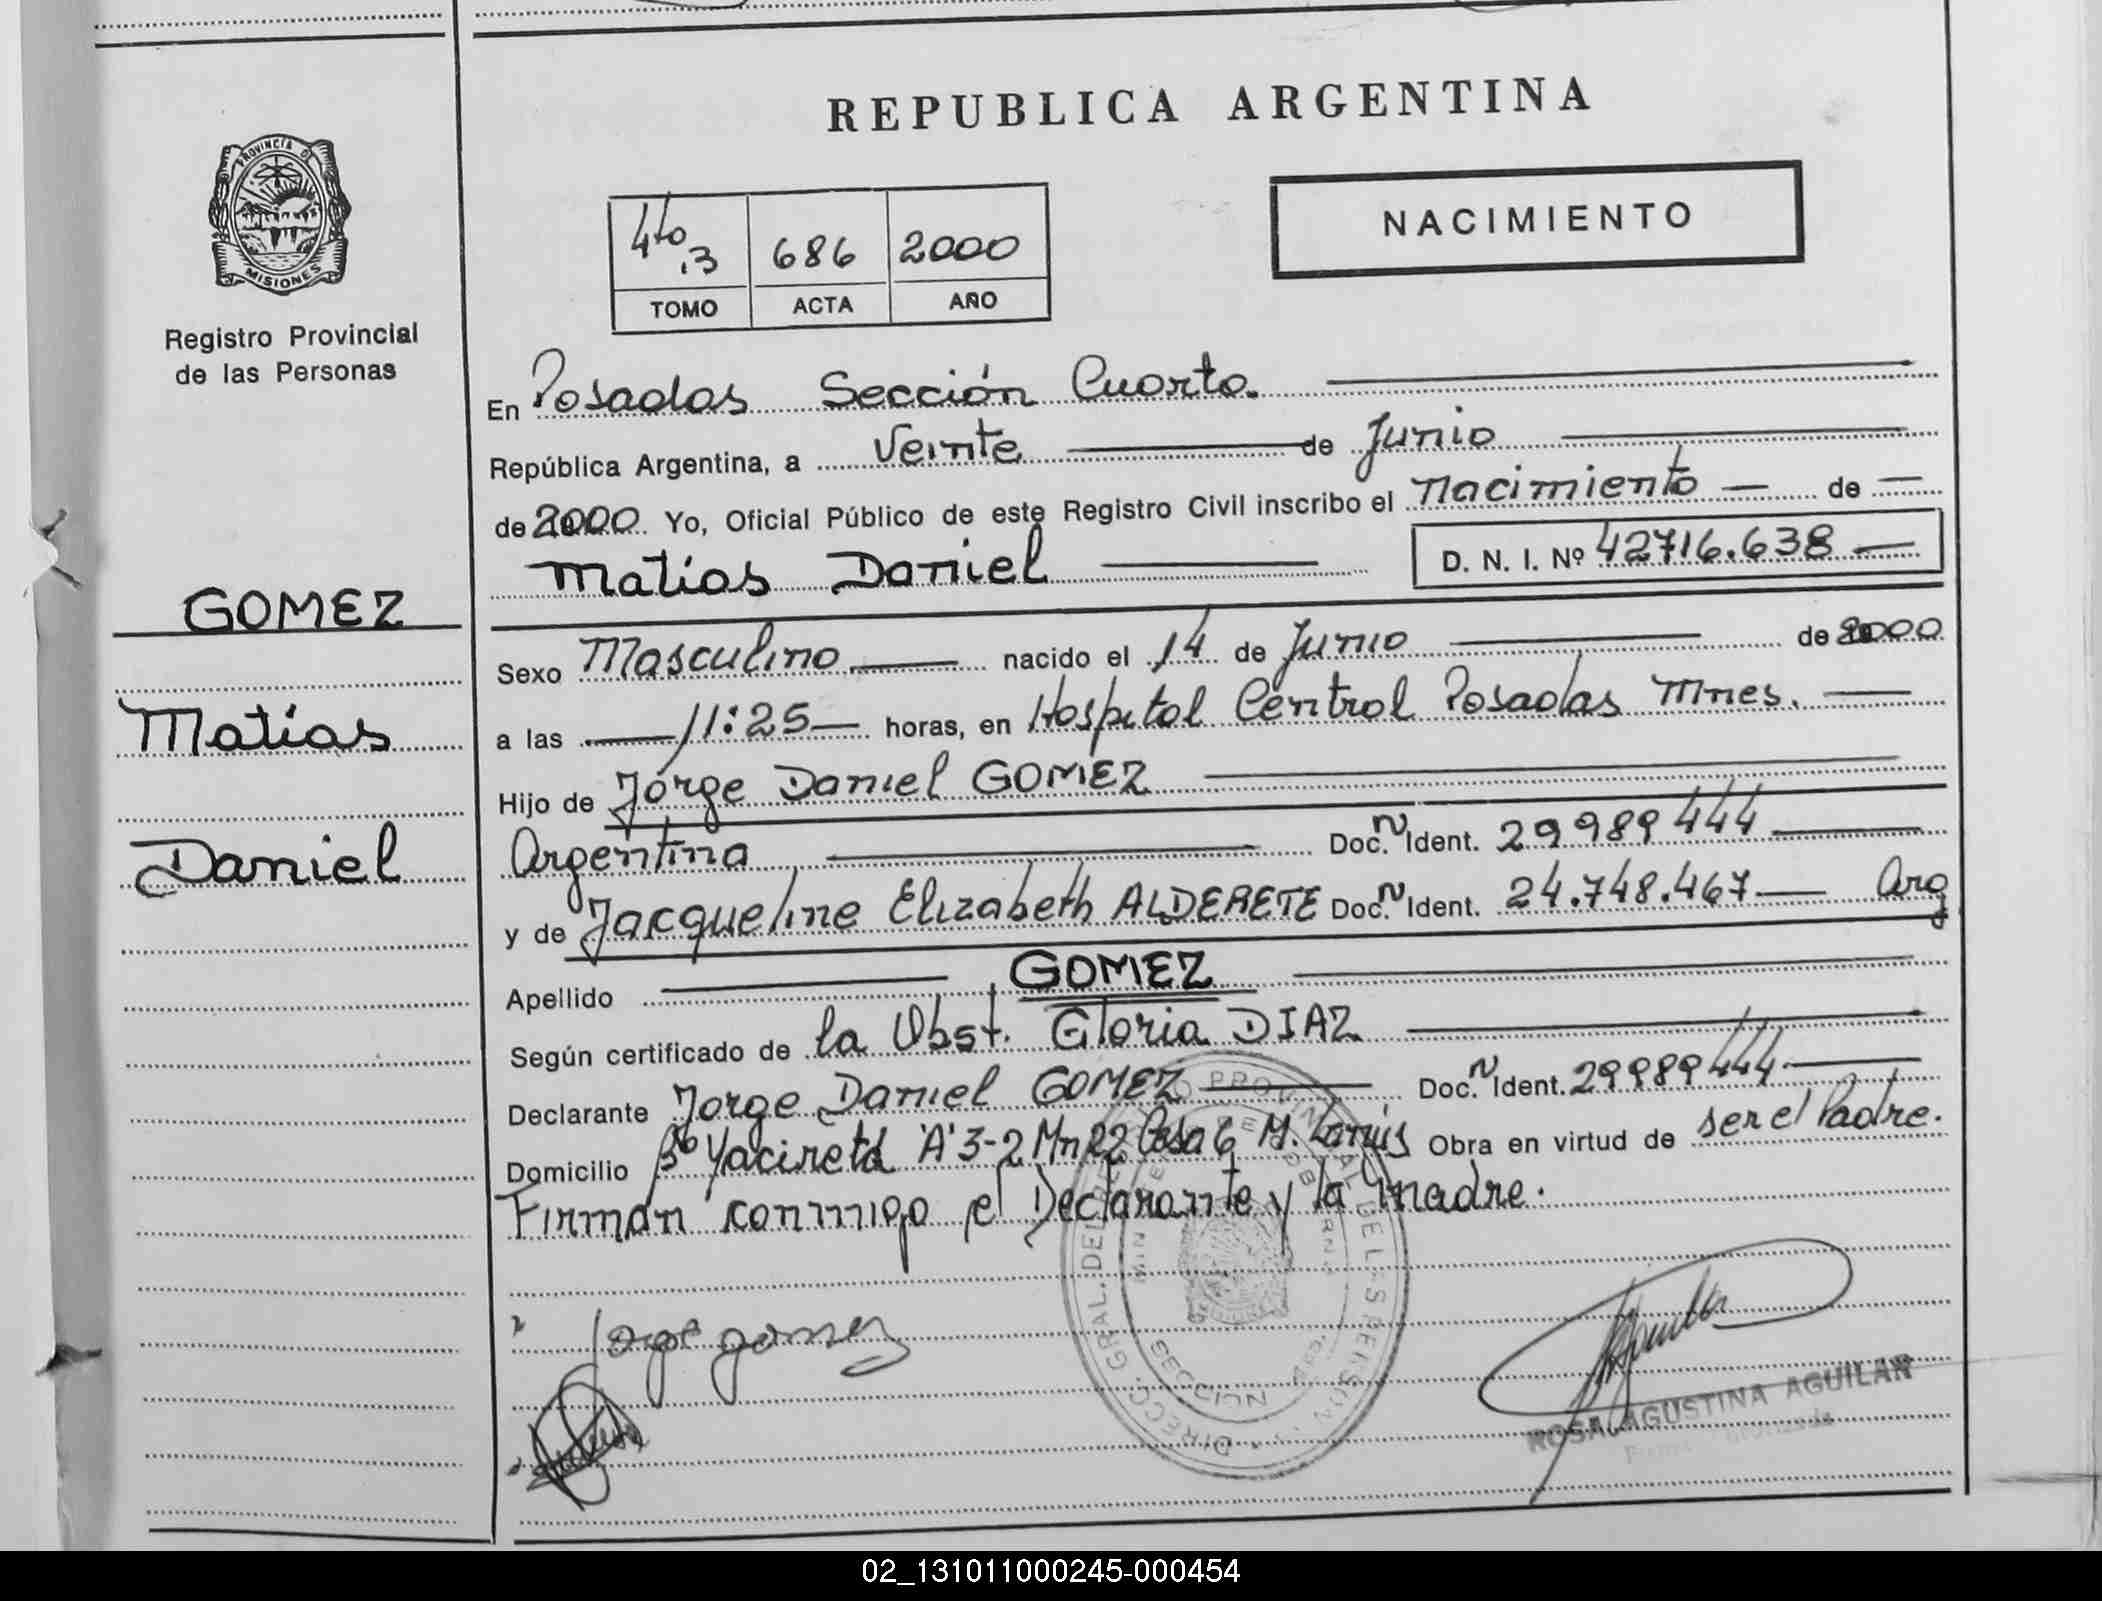 REPUBLICA ARGENTINA
NACIMIENTO
PROVINCIA DE
MISIONES
Registro Provincial
de las Personas
4to 3 686 2000
TOMO ACTA AÑO
En Posadas Sección Cuarta.
República Argentina, a Veinte de Junio
de 2000 Yo, Oficial Público de este Registro Civil inscribo el nacimiento de
Matías Daniel D. N. I. Nº 42716.638
GOMEZ
Matías
Daniel
Sexo Masculino nacido el 14 de Junio de 2000
a las 11:25 horas, en Hospital Central Posadas Mnes.
Hijo de Jorge Daniel GOMEZ
Argentina Doc. N Ident. 29989444
y de Jacqueline Elizabeth ALDERETE Doc. N Ident. 24.748.467 Arg
Apellido GOMEZ
Según certificado de la Obst. Gloria DIAZ
Declarante Jorge Daniel GOMEZ Doc. N Ident. 29989444
Domicilio Bº Yacireta 'A' 3-2 Mn 22 Casa 6 M. Obra en virtud de ser el Padre.
Firman conmigo el Declarante y la madre.
Jorge gomez
ROSA AGUSTINA AGUILAR
02_131011000245-000454